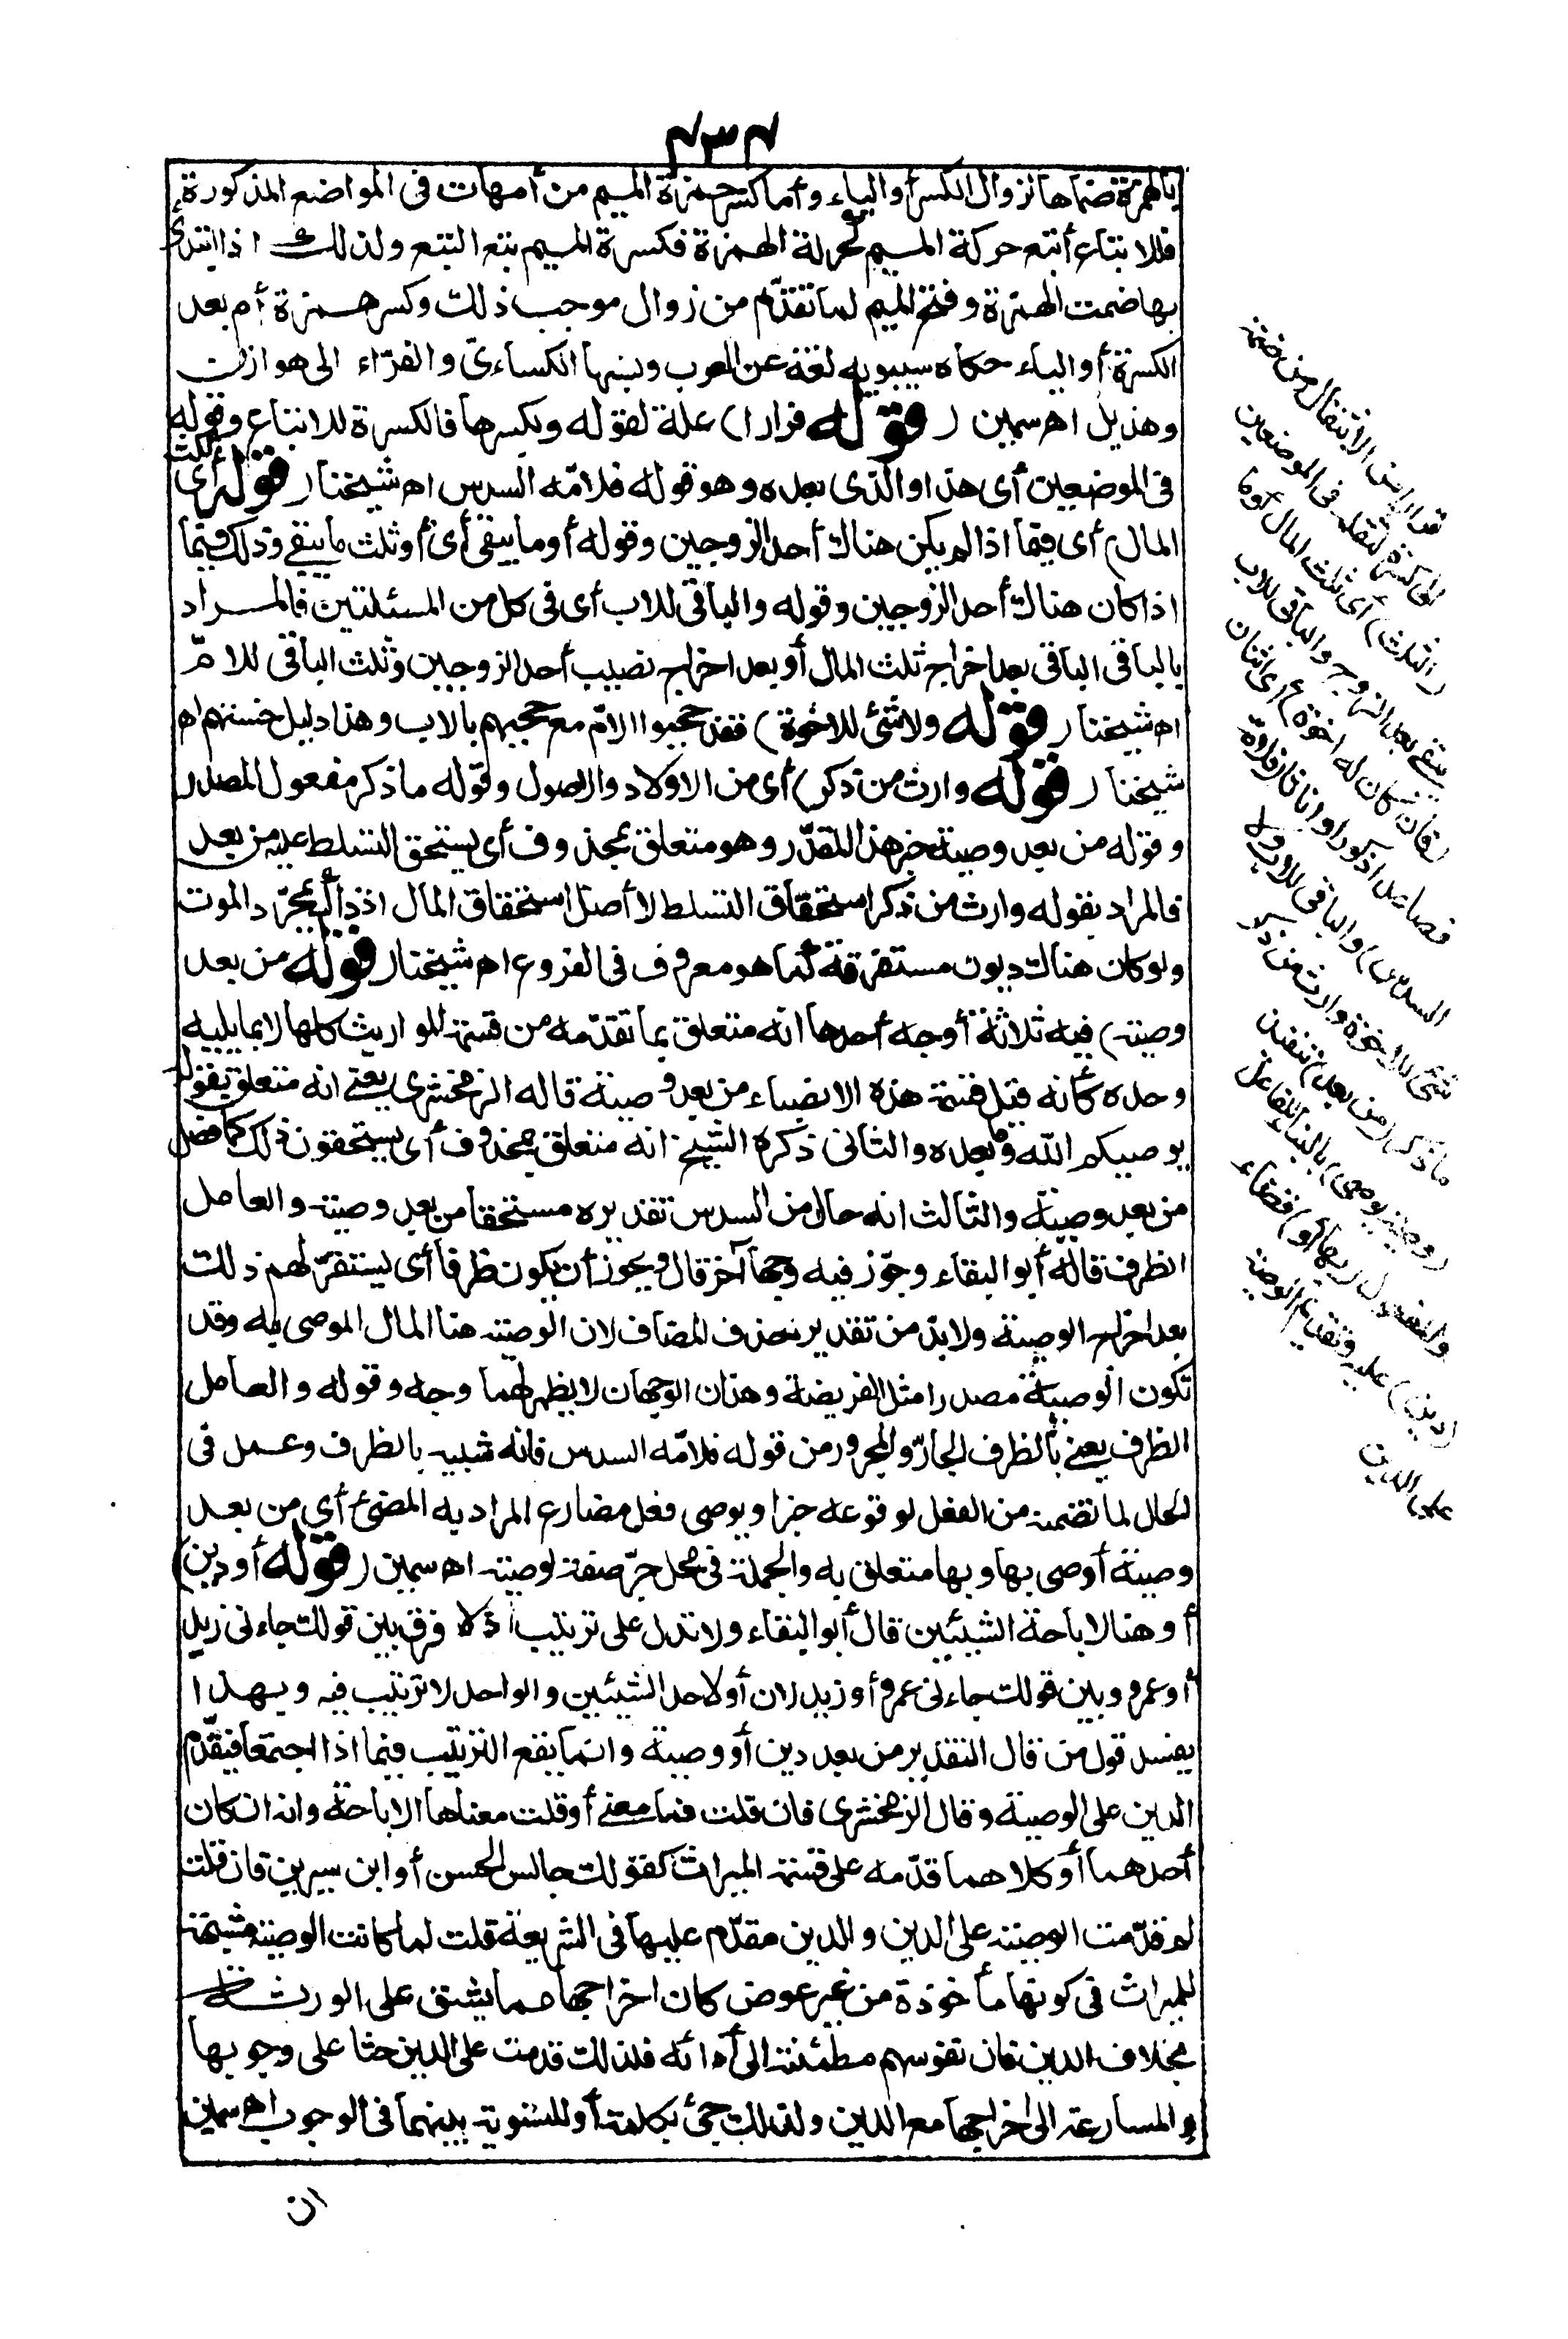 ٤٣٤
بالهمزة ضماها لزوال الكسر أو الياء وأما كسر حمزة الميم من أمهات فى المواضع المذكورة
فللاتباع أتبع حركة الميم لحركة الهمزة فكسرة الميم تبع التبع ولذلك اذا ابتدئ
بها ضمت الهمزة وفتح الميم لما تقدّم من زوال موجب ذلك وكسر همزة أم بعد
الكسرة أو الياء حكاه سيبويه لغة عن العرب ونسبها الكساءىّ والفرّاء الى هوازن
وهذيل اه سمين (قوله فرارا) علة لقوله وبكسرها فالكسرة للاتباع وقوله
فى الموضعين أى هذا والذى بعده وهو قوله فلامّه السدس اه شيخنا (قوله أى ثلث
المال) أى فيما اذا لم يكن هناك أحد الزوجين وقوله أو ما يبقى أى أو ثلث ما يبقى وذلك فيما
اذا كان هناك أحد الزوجين وقوله والباقى للاب أى فى كل من المسئلتين فالمراد
بالباقى الباقى بعد اخراج ثلث المال أو بعد اخراج نصيب أحد الزوجين وثلث الباقى للامّ
اه شيخنا (قوله ولا شئ للاخوة) فقد حجبوا الامّ مع حجبهم بالاب وهذا دليل خستهم اه
شيخنا (قوله وارث من ذكر) أى من الاولاد والاصول وقوله ما ذكر مفعول المصدر
وقوله من بعد وصية خبر هذا المقدّر وهو متعلق بمحذوف أى يستحق التسلط عليه من بعد
فالمراد بقوله وارث من ذكر استحقاق التسلط لا أصل استحقاق المال اذ ذاك بمجرّد الموت
ولو كان هناك ديون مستغرقة كما هو معروف فى الفروع اه شيخنا (قوله من بعد
وصية) فيه ثلاثة أوجه أحدها انه متعلق بما تقدّمه من قسمة المواريث كلها لا بما يليه
وحده كأنه قيل قسمة هذه الانصباء من بعد وصية قاله الزمخشرى يعنى انه متعلق بقوله
يوصيكم الله وما بعده والثانى ذكره الشيخ انه متعلق بمحذوف أى يستحقون ذلك كما فصل
من بعد وصية والثالث انه حال من السدس تقديره مستحقا من بعد وصية والعامل
الظرف قاله أبو البقاء وجوّز فيه وجها آخر قال ويجوز أن يكون ظرفا أى يستقرّ لهم ذلك
بعد اخراج الوصية ولا بدّ من تقدير حذف المضاف لان الوصية هنا المال الموصى به وقد
تكون الوصية مصدرا مثل الفريضة وهذان الوجهان لا يظهر لهما وجه وقوله والعامل
الظرف يعنى بالظرف الجارّ والمجرور من قوله فلامّه السدس فانه شبيه بالظرف وعمل فى
الحال لما تضمنه من الفعل لوقوعه خبرا ويوصى فعل مضارع المراد به المضىّ أى من بعد
وصية أوصى بها وبها متعلق به والجملة فى محل جرّ صفة لوصية اه سمين (قوله أو دين)
أو هنا لاباحة الشيئين قال أبو البقاء ولا تدل على ترتيب اذ لا فرق بين قولك جاءنى زيد
أو عمرو وبين قولك جاءنى عمرو أو زيد لان أو لاحد الشيئين والواحد لا ترتيب فيه وبهذا
يفسد قول من قال التقدير من بعد دين أو وصية وانما يقع الترتيب فيما اذا اجتمعا فيقدّم
الدين على الوصية وقال الزمخشرى فان قلت فما معنى أو قلت معناها الاباحة وانه ان كان
أحدهما أو كلاهما قدّمه على قسمة الميراث كقولك جالس الحسن أو ابن سيرين فان قلت
لم قدّمت الوصية على الدين والدين مقدّم عليها فى الشريعة قلت لما كانت الوصية مشبهة
للميراث فى كونها مأخوذة من غير عوض كان اخراجها مما يشق على الورثة
بخلاف الدين فان نفوسهم مطمئنة الى أدائه فلذلك قدمت على الدين حثا على وجوبها
والمسارعة الى اخراجها مع الدين ولذلك جئ بكلمة أو للتسوية بينهما فى الوجوب اه سمين
فرارا من الانتقال من ضمة
الى كسرة لثقله فى الموضعين
(الثلث) أى ثلث المال أو ما
يبقى بعد الزوج والباقى للاب
(فان كان له اخوة) أى اثنان
فصاعدا ذكورا أو اناثا (فلامّه
السدس) والباقى للاب ولا
شئ للاخوة وارث من ذكر
ما ذكر (من بعد) تنفيذ
(وصية يوصى) بالبناء للفاعل
والمفعول (بها أو) قضاء
(دين) عليه وتقديم الوصية
على الدين
ان